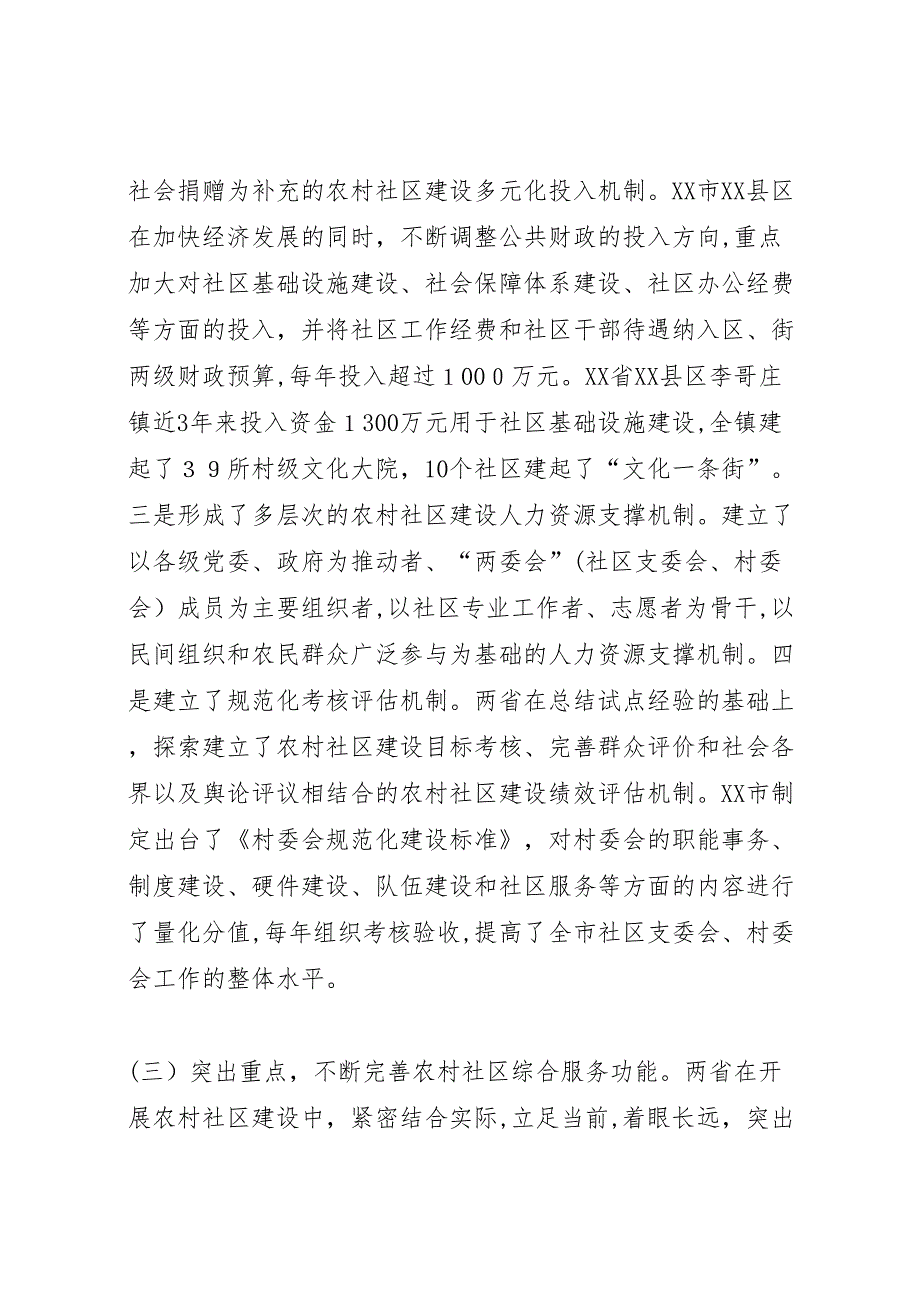 社会捐赠为补充的农村社区建设多元化投入机制。XX市XX县区
在加快经济发展的同时，不断调整公共财政的投入方向,重点
加大对社区基础设施建设、社会保障体系建设、社区办公经费
等方面的投入，并将社区工作经费和社区干部待遇纳入区、街
两级财政预算,每年投入超过１００0万元。XX省XX县区李哥庄
镇近3年来投入资金１300万元用于社区基础设施建设,全镇建
起了３９所村级文化大院，10个社区建起了“文化一条街”。
三是形成了多层次的农村社区建设人力资源支撑机制。建立了
以各级党委、政府为推动者、“两委会”(社区支委会、村委
会）成员为主要组织者,以社区专业工作者、志愿者为骨干,以
民间组织和农民群众广泛参与为基础的人力资源支撑机制。四
是建立了规范化考核评估机制。两省在总结试点经验的基础上
，探索建立了农村社区建设目标考核、完善群众评价和社会各
界以及舆论评议相结合的农村社区建设绩效评估机制。XX市制
定出台了《村委会规范化建设标准》，对村委会的职能事务、
制度建设、硬件建设、队伍建设和社区服务等方面的内容进行
了量化分值,每年组织考核验收,提高了全市社区支委会、村委
会工作的整体水平。
(三）突出重点，不断完善农村社区综合服务功能。两省在开
展农村社区建设中，紧密结合实际,立足当前,着眼长远，突出